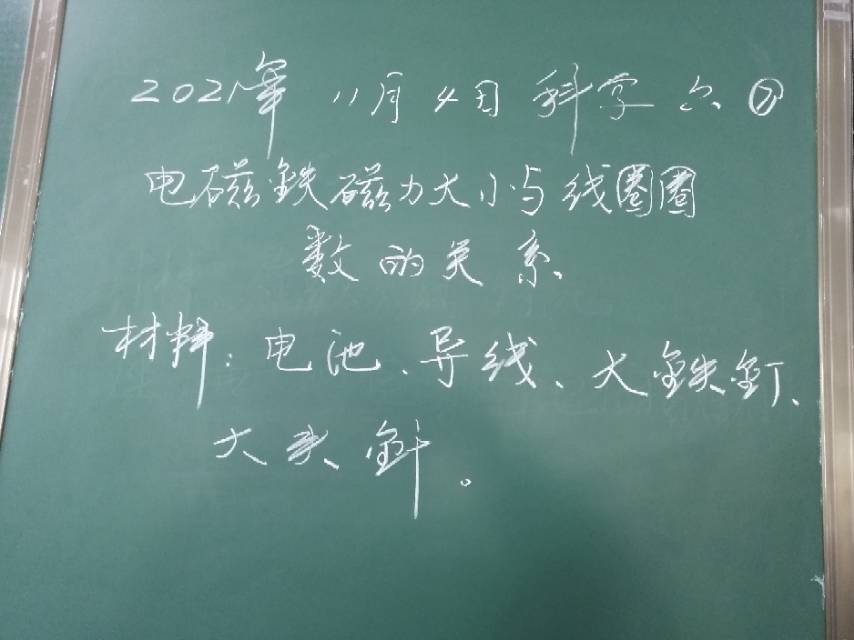 2021年 11月4日 科学 六⑦
电磁鉄磁力大小与线圈圈
数的关系
材料：电池、导线、大鉄釘、
大头針。